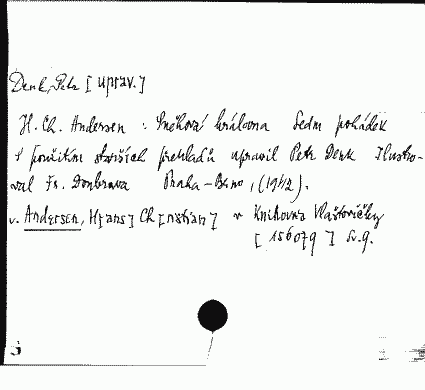 Denk, Petr [uprav.]
H. Ch. Andersen : Sněhová královna Sedm pohádek
S použitím starších překladů upravil Petr Denk Ilustro-
val Fr. Doubrava Praha-Brno, (1942).
v. Andersen, H[ans] Ch[ristian] v Knihovna Vlaštovičky
[156079] Sv. 9.